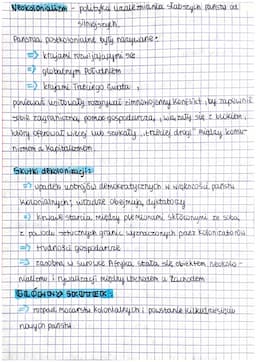 Neokolonializm - polityka uzależniania słabszych państw od
silniejszych.
Państwa postkolonialne były nazywane:
=> krajami rozwijającymi się
=> globalnym Południem
=> krajami Trzeciego Świata,
ponieważ usiłowały rozgrywać zimnowojenny konflikt, by zapewnić
sobie zagraniczną pomoc gospodarczą, wiązały się z blokiem,
który oferował więcej lub szukały "trzeciej drogi" między komu-
nizmem a kapitalizmem.
Skutki dekolonizacji:
=> upadek ustrojów demokratycznych w większości państw
kolonialnych, władzę obejmują dyktatorzy
=> krwawe starcia między plemionami skłóconymi ze sobą
z powodu sztucznych granic wyznaczonych przez kolonizatorów
=> trudności gospodarcze
=> zasobna w surowce Afryka stała się obiektem neokolo-
nializmu i rywalizacji między Wschodem a Zachodem
GŁÓWNY SKUTEK:
=> rozpad mocarstw kolonialnych i powstanie kilkudziesięciu
nowych państw